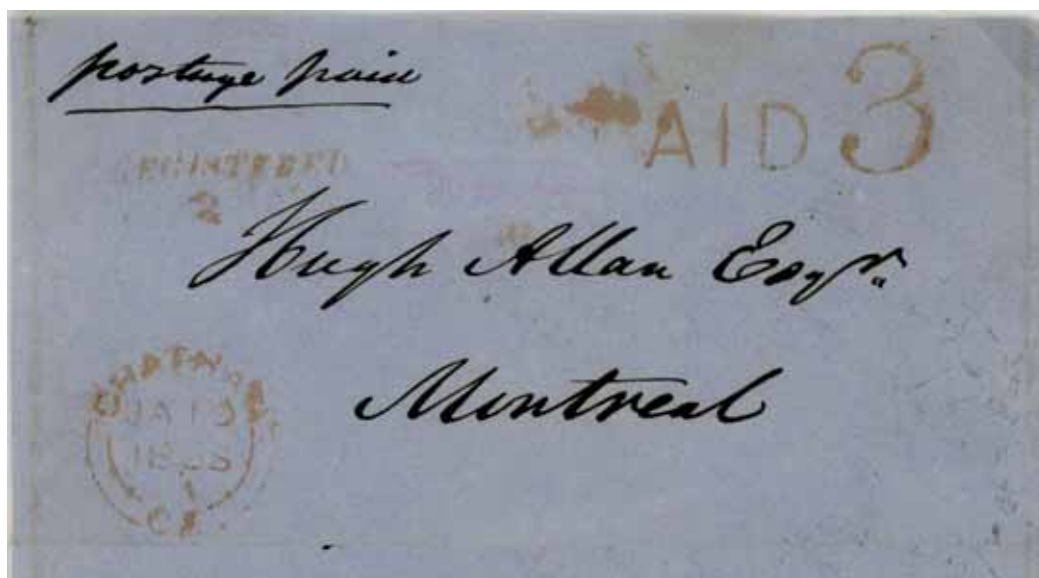 postage paid
AID 3
REGISTERED
Hugh Allan Esqr.
Montreal